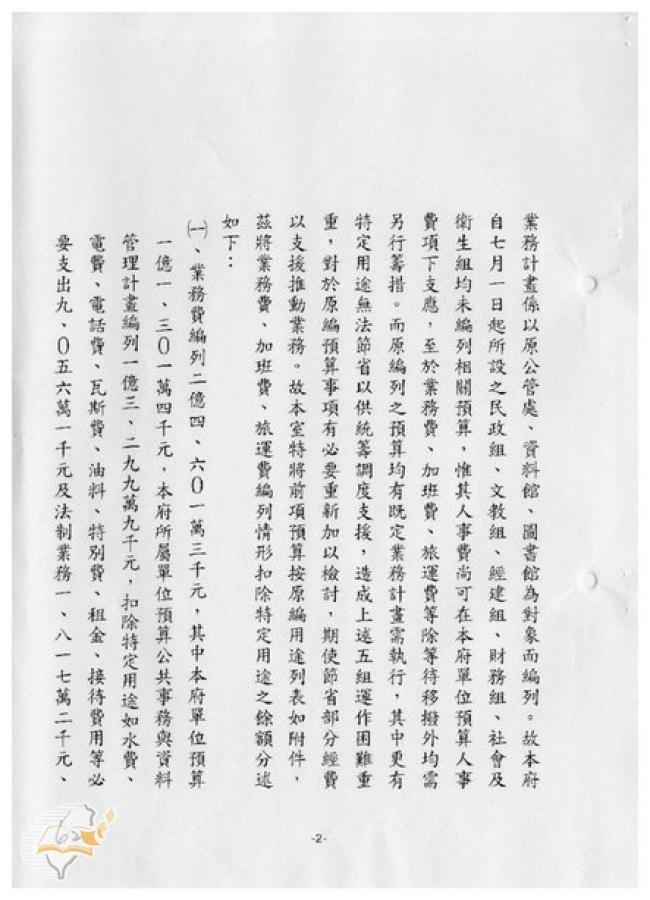 業務計畫係以原公管處、資料館、圖書館為對象而編列。故本府
自七月一日起所設之民政組、文教組、經建組、財務組、社會及
衛生組均未編列相關預算，惟其人事費尚可在本府單位預算人事
費項下支應，至於業務費、加班費、旅運費等除等待移撥外均需
另行籌措。而原編列之預算均有既定業務計畫需執行，其中更有
特定用途無法節省以供統籌調度支援，造成上述五組運作困難重
重，對於原編預算事項有必要重新加以檢討，期使節省部分經費
以支援推動業務。故本室特將前項預算按原編用途列表如附件，
茲將業務費、加班費、旅運費編列情形扣除特定用途之餘額分述
如下：
㈠、業務費編列二億四、六０一萬三千元，其中本府單位預算
一億一、三０一萬四千元，本府所屬單位預算公共事務與資料
管理計畫編列一億三、二九九萬九千元，扣除特定用途如水費、
電費、電話費、瓦斯費、油料、特別費、租金、接待費用等必
要支出九、０五六萬一千元及法制業務一、八一七萬二千元、
-2-
62